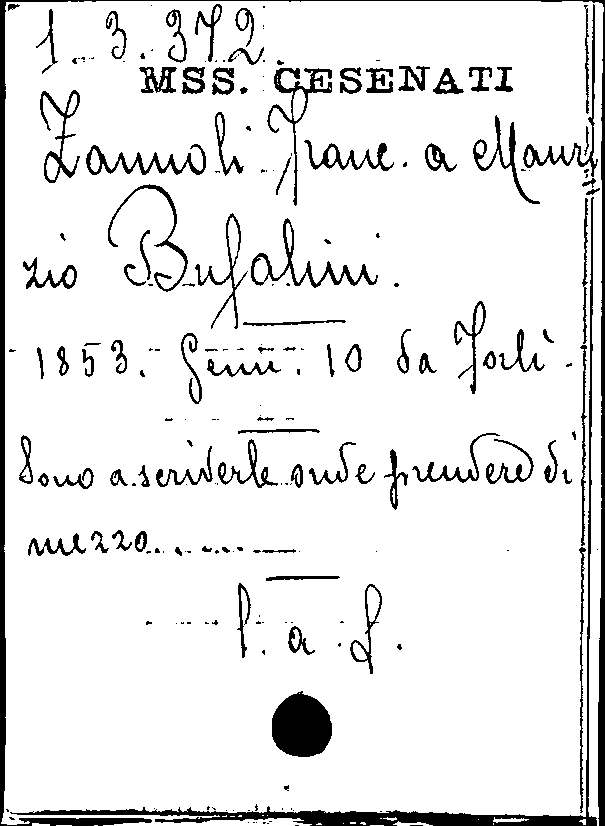 1. 3. 372
MSS. CESENATI
Zannoli Franc. a Mauri
zio Bufalini.
1853. Genn. 10 da Forlì.
Sono a scriverle onde prendere di
mezzo.........
l. a. f.